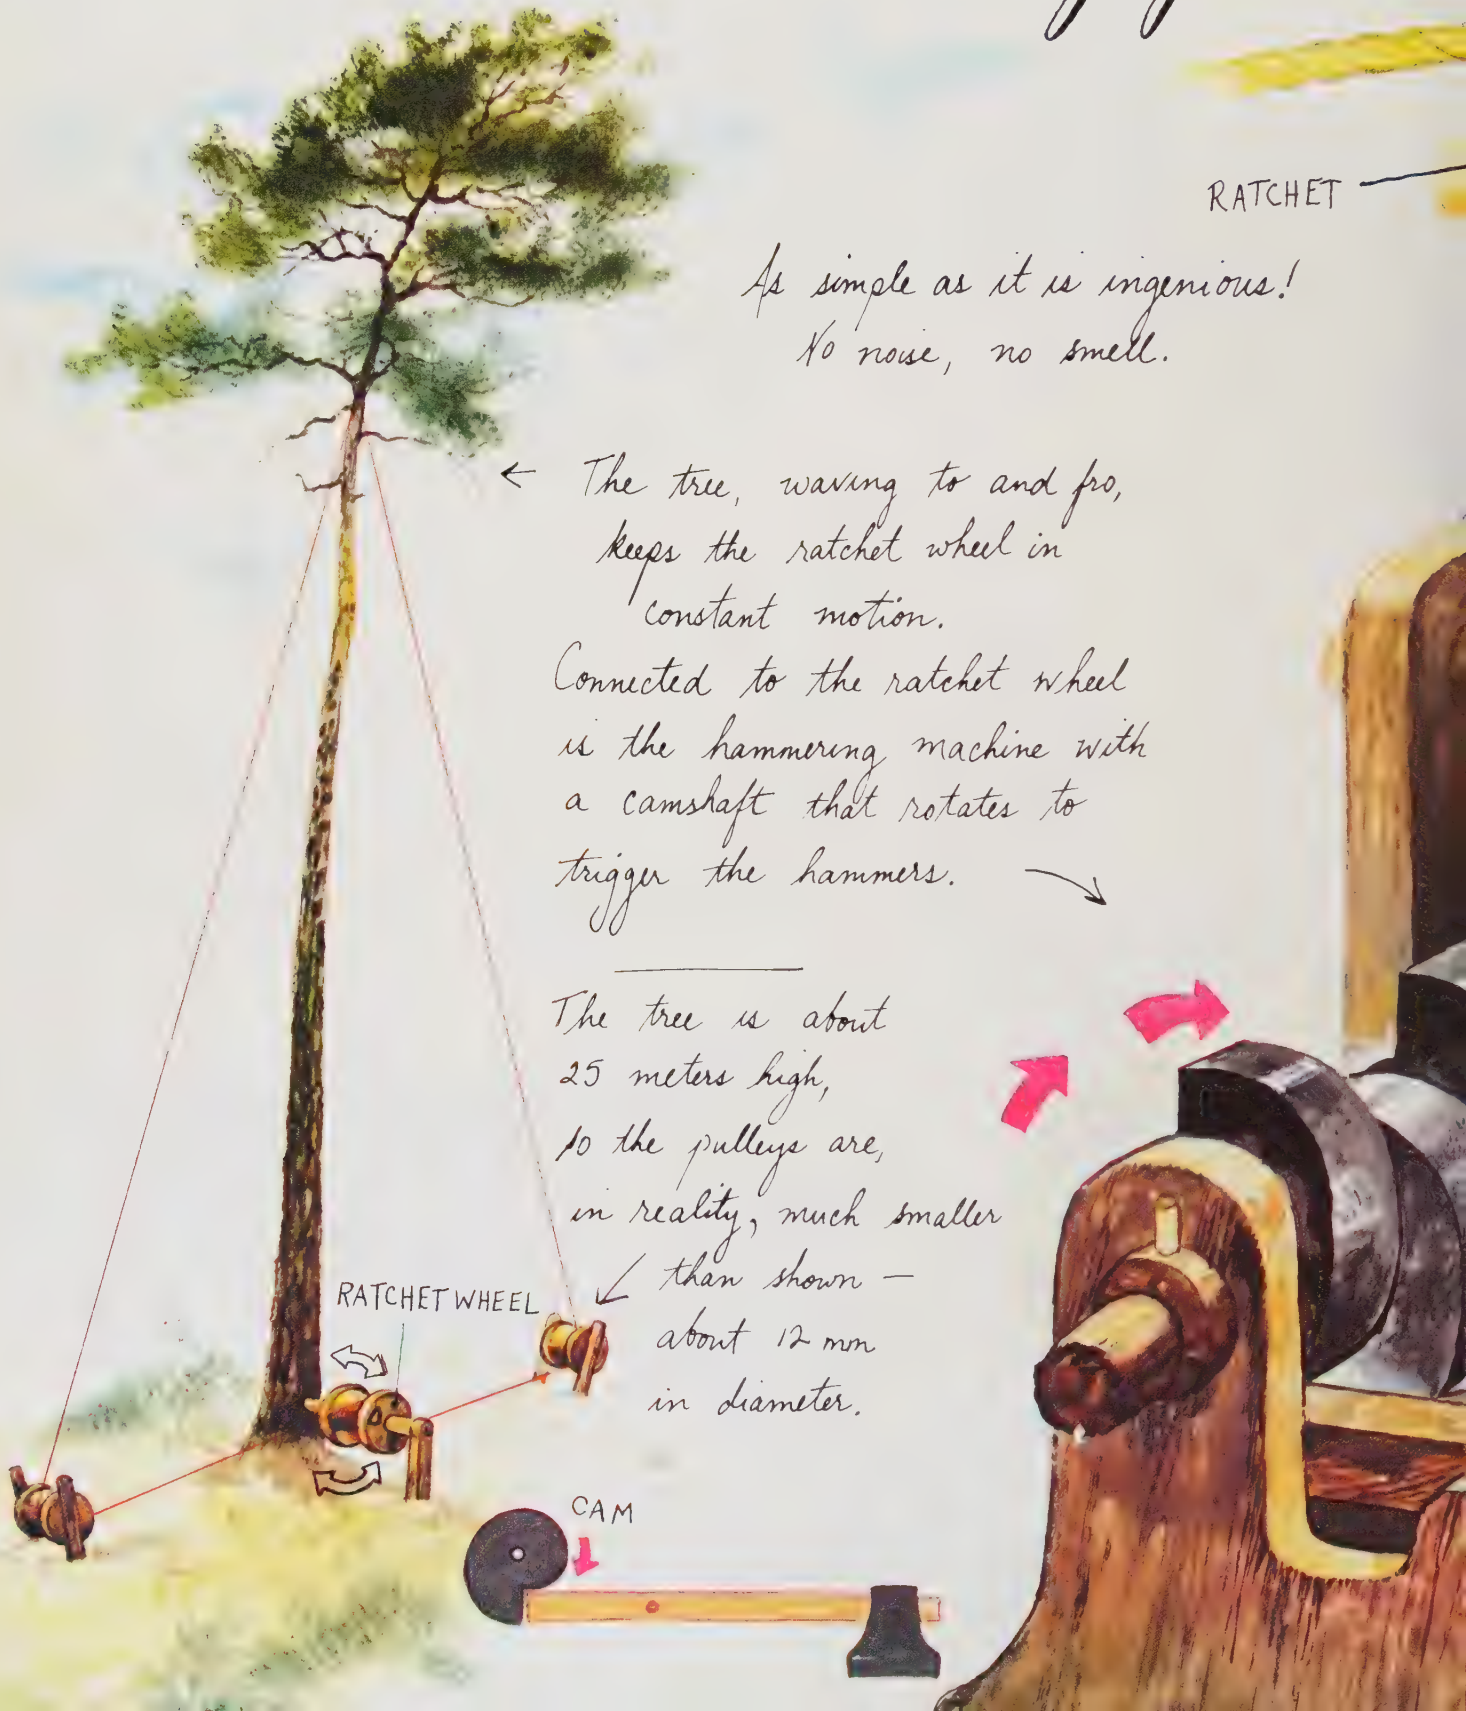 RATCHET
As simple as it is ingenious!
No noise, no smell.
← The tree, waving to and fro,
keeps the ratchet wheel in
constant motion.
Connected to the ratchet wheel
is the hammering machine with
a camshaft that rotates to
trigger the hammers.
The tree is about
25 meters high,
so the pulleys are,
in reality, much smaller
than shown —
about 12 mm
in diameter.
RATCHET WHEEL
CAM